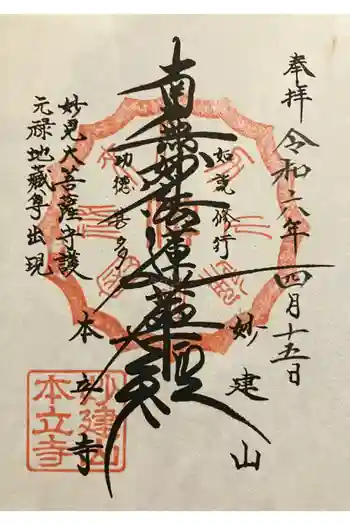 奉拝
令和六年 四月十五日
如説修行
妙建山
南無妙法蓮華経
功徳甚多
本立寺
妙見大菩薩守護
元禄地蔵尊出現
妙建山
本立寺